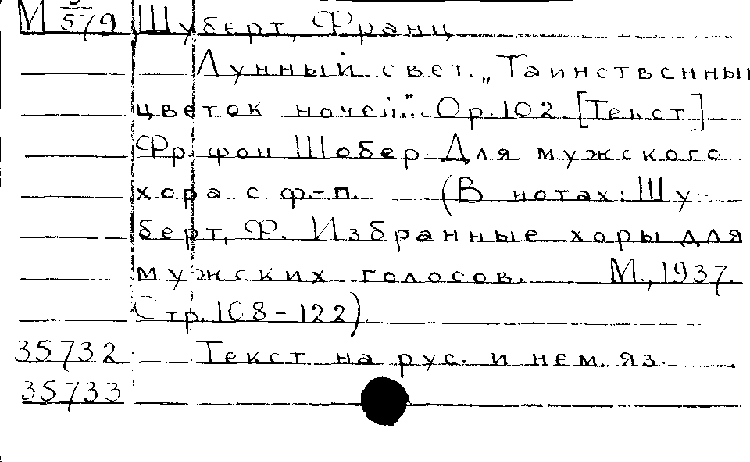 М 3/579 Шуберт, Франц
Лунный свет. „Таинственный
цветок ночей". Op. 102. [Текст]
Фр. фон Шобер. Для мужского
хора с ф-п. (В нотах: Шу-
берт, Ф. Избранные хоры для
мужских голосов. М., 1937.
Стр. 108-122).
35732 Текст на рус. и нем. яз.
35733